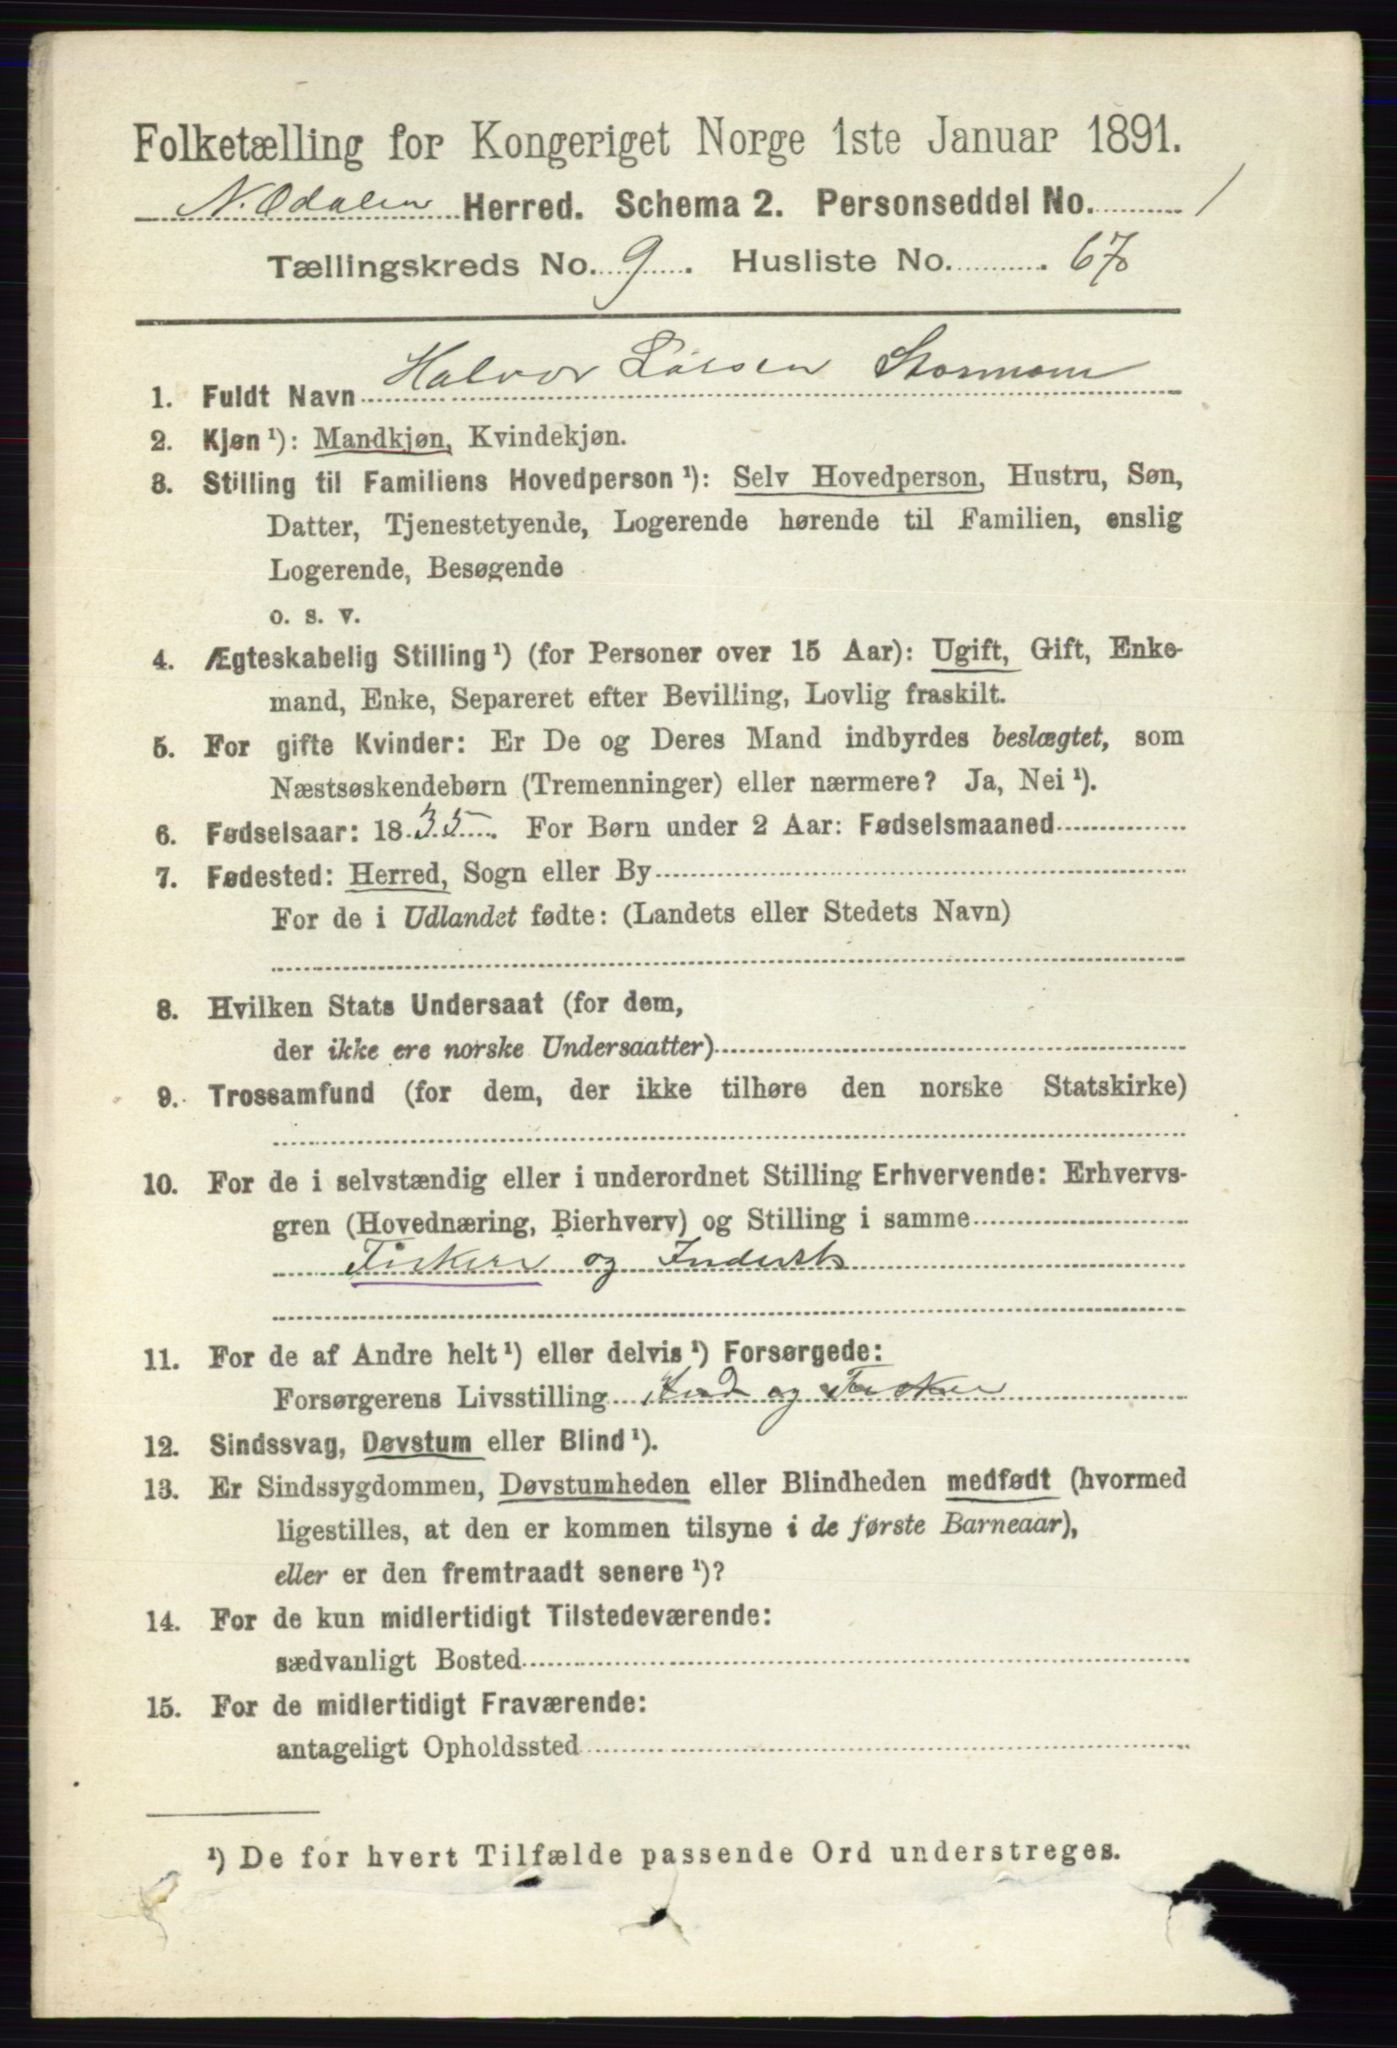 Folketælling for Kongeriget Norge 1ste Januar 1891.
N. Odalen Herred. Schema 2. Personseddel No. 1
Tællingskreds No. 9. Husliste No. 67
1. Fuldt Navn Halvor Larsen
2. Kjøn ¹): Mandkjøn, Kvindekjøn.
3. Stilling til Familiens Hovedperson ¹): Selv Hovedperson, Hustru, Søn,
Datter, Tjenestetyende, Logerende hørende til Familien, enslig
Logerende, Besøgende
o. s. v.
4. Ægteskabelig Stilling ¹) (for Personer over 15 Aar): Ugift, Gift, Enke-
mand, Enke, Separeret efter Bevilling, Lovlig fraskilt.
5. For gifte Kvinder: Er De og Deres Mand indbyrdes beslægtet, som
Næstsøskendebørn (Tremenninger) eller nærmere? Ja, Nei ¹).
6. Fødselsaar: 1835. For Børn under 2 Aar: Fødselsmaaned
7. Fødested: Herred, Sogn eller By
For de i Udlandet fødte: (Landets eller Stedets Navn)
8. Hvilken Stats Undersaat (for dem,
der ikke ere norske Undersaatter)
9. Trossamfund (for dem, der ikke tilhøre den norske Statskirke)
10. For de i selvstændig eller i underordnet Stilling Erhvervende: Erhvervs-
gren (Hovednæring, Bierhverv) og Stilling i samme
Fisker og Inderst
11. For de af Andre helt ¹) eller delvis ¹) Forsørgede:
Forsørgerens Livsstilling Ind og Fisker
12. Sindssvag, Døvstum eller Blind ¹).
13. Er Sindssygdommen, Døvstumheden eller Blindheden medfødt (hvormed
ligestilles, at den er kommen tilsyne i de første Barneaar),
eller er den fremtraadt senere ¹)?
14. For de kun midlertidigt Tilstedeværende:
sædvanligt Bosted
15. For de midlertidigt Fraværende:
antageligt Opholdssted
¹) De for hvert Tilfælde passende Ord understreges.